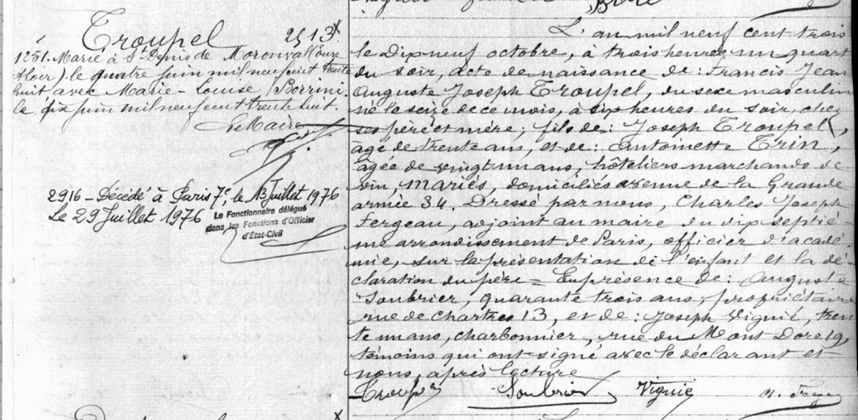 Troupel 2513
1251. Marié à St Denis de Moronval (Eure
le quatre juin mil neuf cent trente
huit avec Marie-Louise Borrini.
le dix juin mil neuf cent trente huit.
Le Maire
2916 - Décédé à Paris 7e, le 13 Juillet 1976
Le 29 Juillet 1976
Le Fonctionnaire délégué
dans les Fonctions d'Officier
d'État-Civil
L'an mil neuf cent trois
le Dix neuf octobre, à trois heures un quart
du soir, acte de naissance de: Francis Jean
Auguste Joseph Troupel, du sexe masculin
né le seize de ce mois, à six heures du soir, chez
ses père et mère; fils de: Joseph Troupel,
âgé de trente ans, et de: Antoinette Trin,
âgée de vingt un ans, hôteliers marchands de
vin, mariés, domiciliés avenue de la Grande
armée 34. Dressé par nous, Charles Joseph
Fergeau, adjoint au maire du dix septiè
me arrondissement de Paris, officier d'acadé
mie, sur la présentation de l'enfant et la dé
claration du père = En présence de: Auguste
Soubrier, quarante trois ans, propriétaire
rue de Chartres 13, et de: Joseph Vignil, tren
te un ans, charbonnier, rue du Mont Dore 19,
témoins qui ont signé avec le déclarant et
nous, après lecture
Troupel Soubrier Vignié